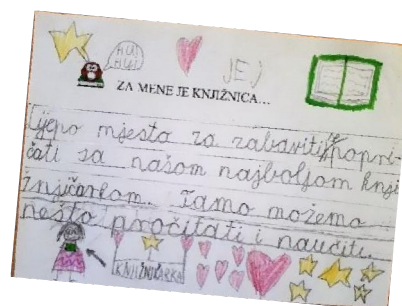 HU!
HU!
JE:)
ZA MENE JE KNJIŽNICA...
Lijepo mjesto za zabaviti se, popri-
čati sa našom najboljom knji
žničarkom. Tamo možemo
nešto pročitati i naučiti.
KNJIŽNIČARKA